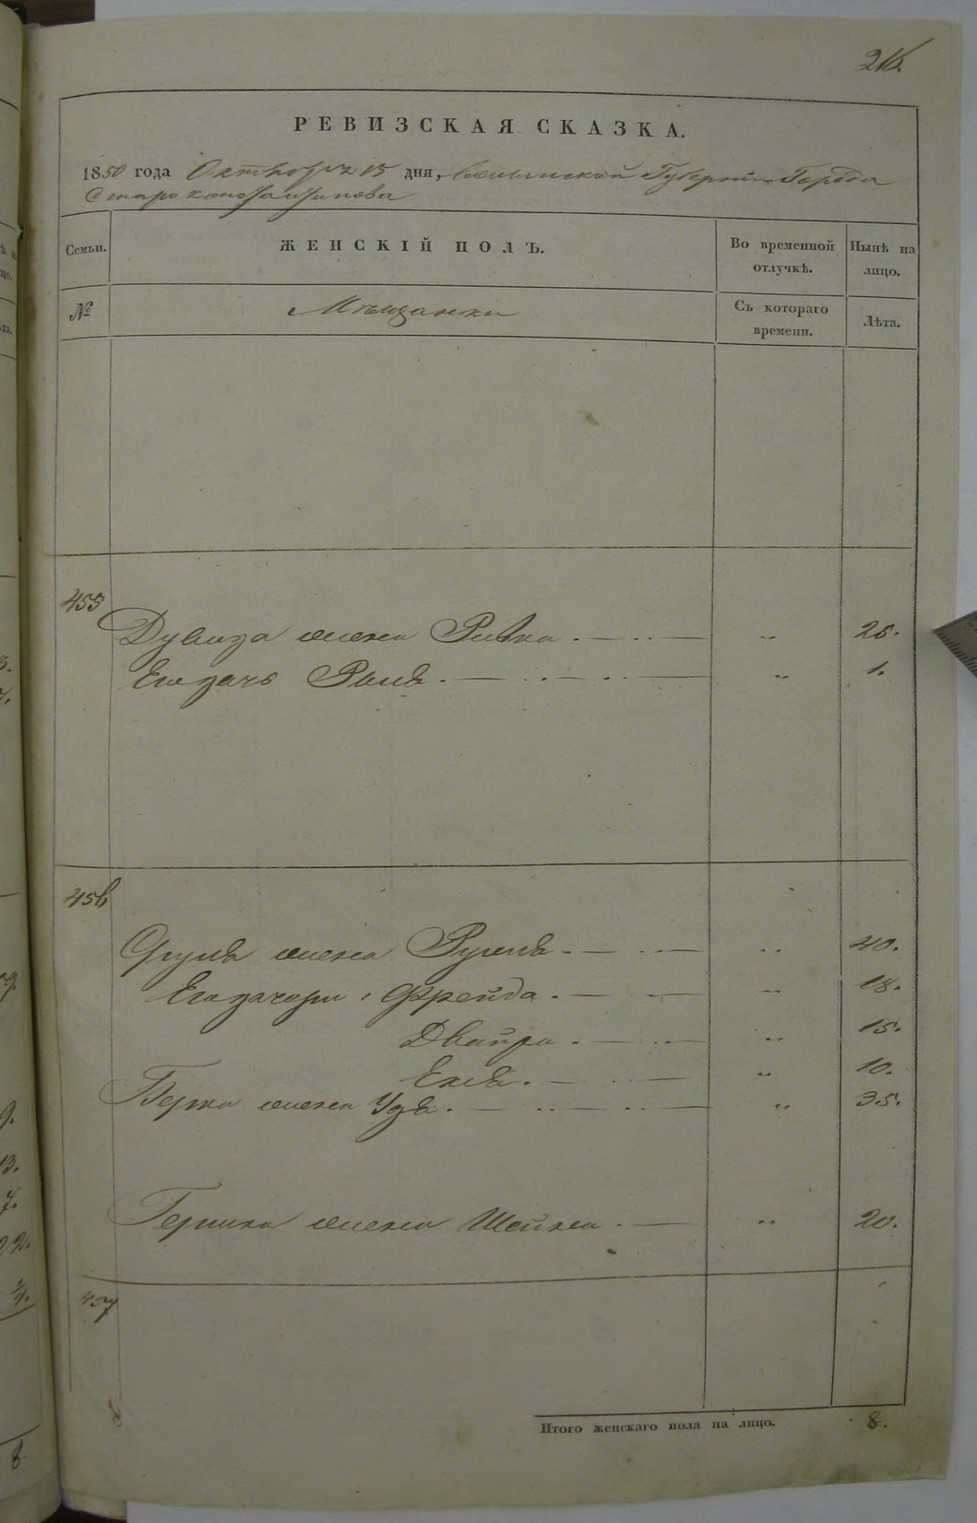 216.
РЕВИЗСКАЯ СКАЗКА.
1850 года Октября 15 дня, Волынской Губернии Города
Староконстантинова
Семьи. ЖЕНСКІЙ ПОЛЪ. Во временной отлучкѣ. Нынѣ на лицо.
№ Мѣщанки Съ котораго времени. Лѣта.
455
Дувида жена Ривка . — .. — „ 26.
Его дочь Рыся . — . .. — .. — „ 1.
456
жена Рухля . — .. — „ 40.
Его дочери, Фрейда . — .. — „ 18.
Двойра . — .. — „ 15.
Ехля . — .. — „ 10.
Берка жена Удя . — .. — .. — „ 35.
Гершка жена Шейна . — „ 20.
457
Итого женскаго пола на лицо. 8.
3.
7.
9.
13.
7.
22.
8